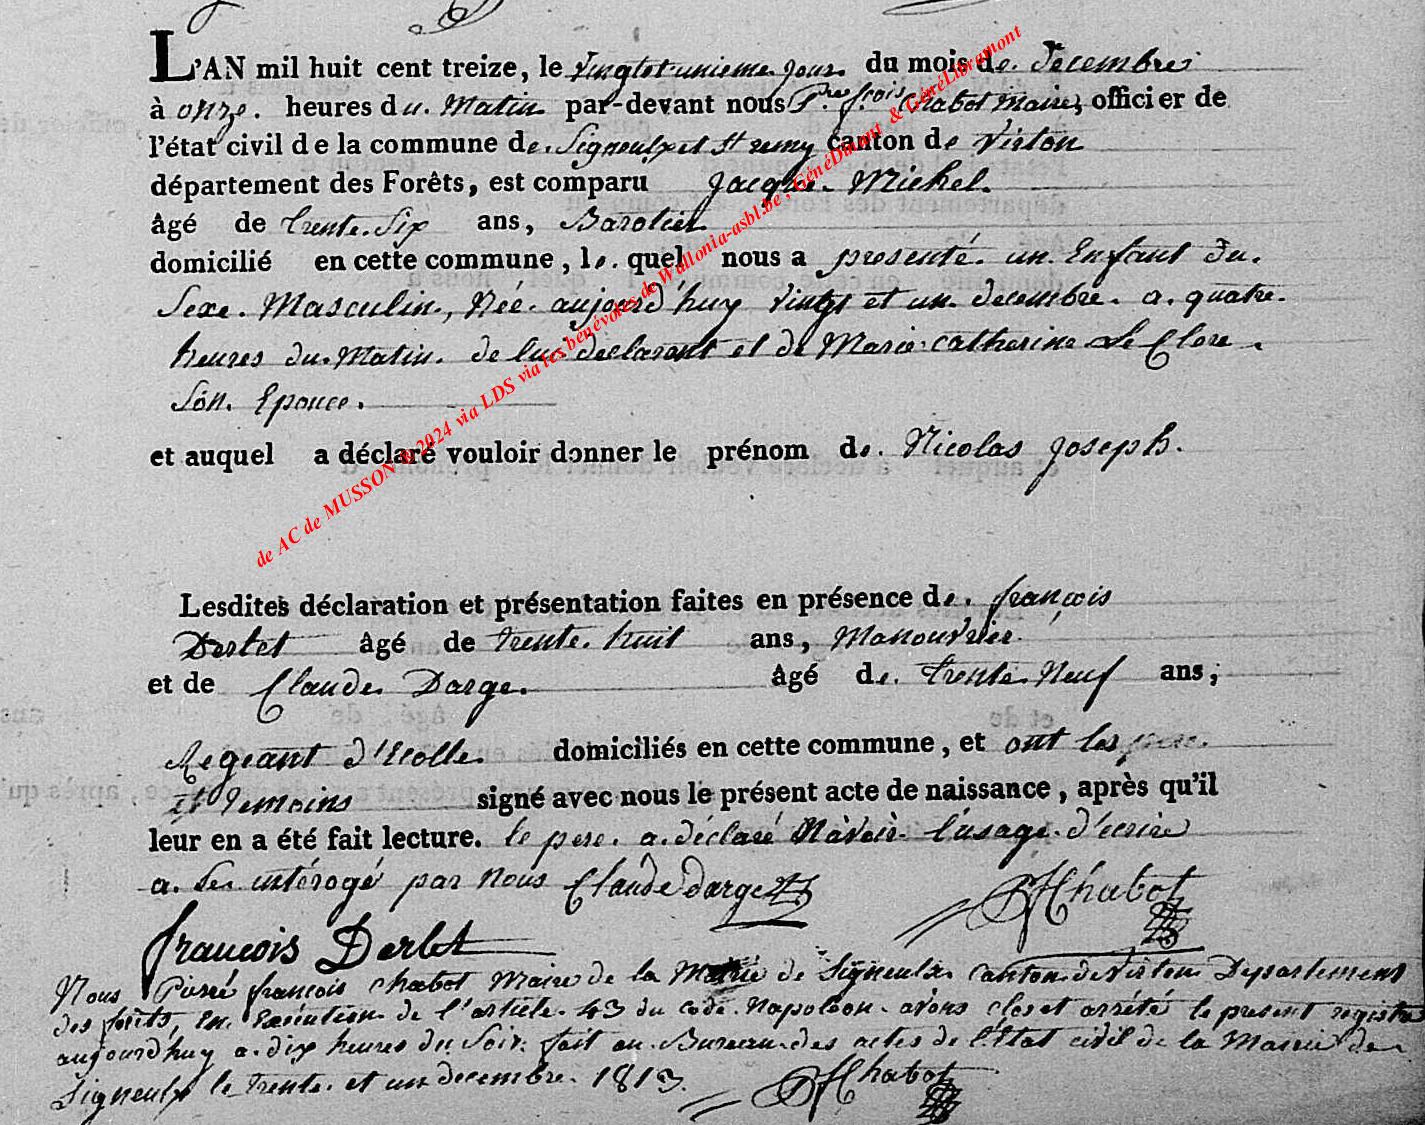 L'AN mil huit cent treize, le vingtet unieme jour du mois de decembre
à onze. heures du Matin par-devant nous P.re f.cois Chabot Maire, officier de
l'état civil de la commune de Signeulx et St remy canton de Virton
département des Forêts, est comparu Jacque Michel.
âgé de trente Six ans,
domicilié en cette commune, le quel nous a presenté un Enfant du
Sexe Masculin, Néé aujourd'huy vingt et un decembre a quatre
heures du Matin de lui déclarant et de Marie Catherine Le Clere
Son Epouce.
et auquel a déclaré vouloir donner le prénom de Nicolas Joseph.
Lesdites déclaration et présentation faites en présence de françois
Derlet âgé de trente huit ans, Manouvrier
et de Claude Darge. âgé de trente Neuf ans,
Regeant d'Ecolle. domiciliés en cette commune, et ont les
et temoins signé avec nous le présent acte de naissance, après qu'il
leur en a été fait lecture. le pere a déclaré N'avoir l'usage d'ecrire
a Ser intérogé par nous Claude darge PFChabot
francois Derlet
Nous Pierre françois Chabot Maire de la Mairie de Signeulx Canton de Virton Departement
des forêts, En Execution de l'article 43 du code Napoleon avons clos et arrété le present registre
aujourdhuy a dix heures du Soir fait au Bureau des actes de l'Etat civil de la Mairie de
Signeulx le trente et un decembre 1813. PFChabot
de AC de MUSSON © 2024 via LDS via les bénévoles de Wallonia-asbl.be, GénéDinant & GénéLibramont